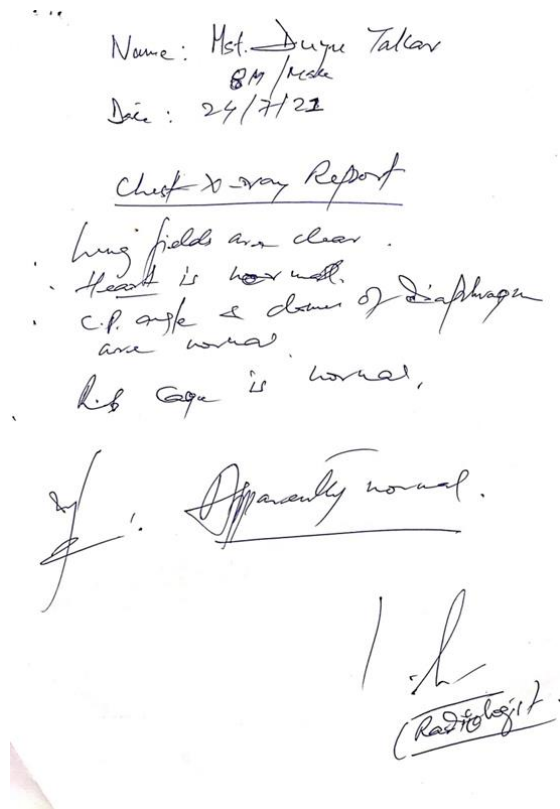 Name: Mst. Talkar
8M / Male
Date: 24/7/21
Chest X-ray Report
Lung fields are clear.
Heart is normal.
C.P. angle & domes of Diaphragm
are normal
Rib cage is normal,
Apparently normal.
(Radiologist)